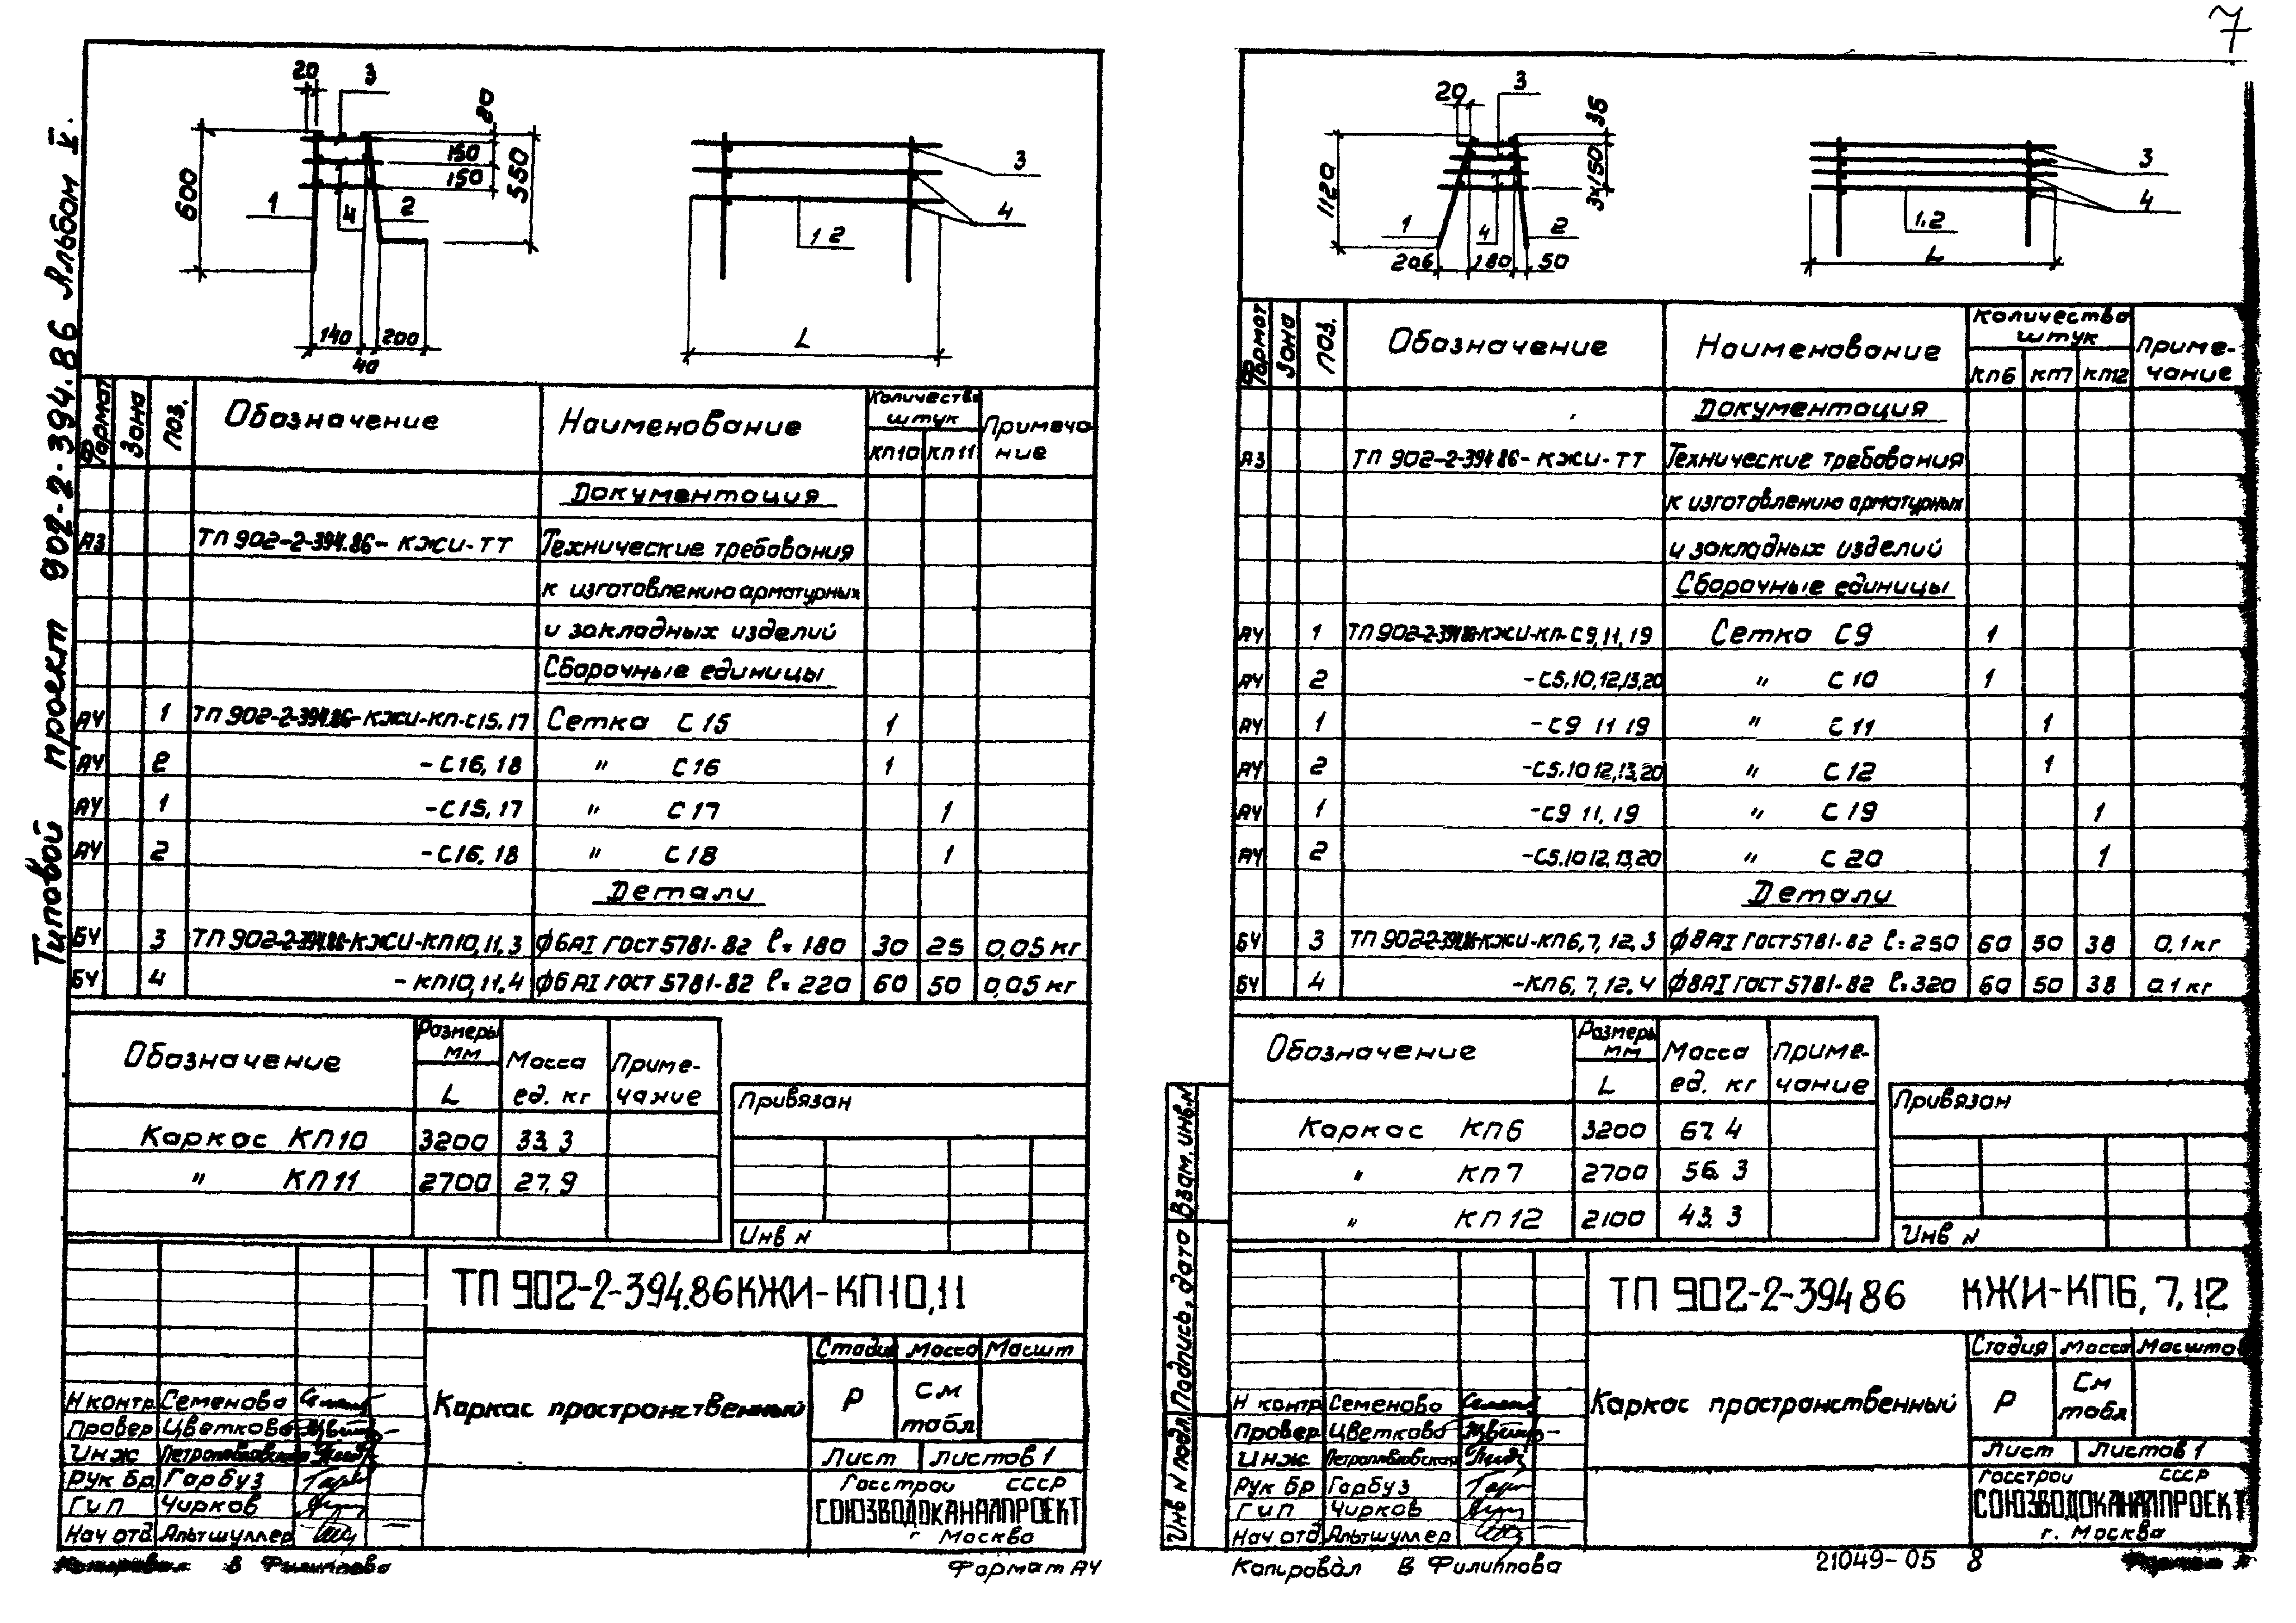 7
Типовой проект 902-2-394.86 Альбом V.
20 3 20
600 150 550
150
1 4 2
140 40 200
3
4
1 2
L
Формат Зона Поз. Обозначение Наименование Количество штук Примеча-
КП10 КП11 ние
Документация
А3 ТП 902-2-394.86-КЖИ-ТТ Технические требования
к изготовлению арматурных
и закладных изделий
Сборочные единицы
А4 1 ТП 902-2-394.86-КЖИ-КП-С15,17 Сетка С15 1
А4 2 -С16,18 " С16 1
А4 1 -С15,17 " С17 1
А4 2 -С16,18 " С18 1
Детали
БЧ 3 ТП 902-2-394.86-КЖИ-КП10,11.3 ф6АI ГОСТ 5781-82 l=180 30 25 0,05 кг
БЧ 4 -КП10,11.4 ф6АI ГОСТ 5781-82 l=220 60 50 0,05 кг
Обозначение Размеры мм Масса Приме-
L ед. кг чание
Каркас КП10 3200 33.3
" КП11 2700 27.9
Привязан
Инв N
ТП 902-2-394.86 КЖИ-КП10,11
Каркас пространственный
Стадия Масса Масшт
Р См
табл
Лист Листов 1
Госстрой СССР
СОЮЗВОДОКАНАЛПРОЕКТ
г Москва
Н контр. Семенова
Провер Цветкова
Инж Петропавловская
Рук бр. Гарбуз
ГИП Чирков
Нач отд. Альтшуллер
Копировал В Филиппова
Формат А4
20 3 36
1120 3х150
1 4 2
206 180 50
3
4
1.2
L
Формат Зона Поз. Обозначение Наименование Количество штук Приме-
КП6 КП7 КП12 чание
Документация
А3 ТП 902-2-394.86-КЖИ-ТТ Технические требования
к изготовлению арматурных
и закладных изделий
Сборочные единицы
А4 1 ТП 902-2-394.86-КЖИ-КП-С9,11,19 Сетка С9 1
А4 2 -С5,10,12,13,20 " С10 1
А4 1 -С9 11 19 " С11 1
А4 2 -С5.10 12,13,20 " С12 1
А4 1 -С9 11,19 " С19 1
А4 2 -С5.10 12,13,20 " С20 1
Детали
БЧ 3 ТП 902-2-394.86-КЖИ-КП6,7,12,3 ф8АI ГОСТ 5781-82 l=250 60 50 38 0.1 кг
БЧ 4 -КП6,7,12.4 ф8АI ГОСТ 5781-82 l=320 60 50 38 0.1 кг
Обозначение Размеры мм Масса Приме-
L ед. кг чание
Каркас КП6 3200 67.4
" КП7 2700 56.3
" КП12 2100 43.3
Привязан
Инв N
Инв N подл. Подпись, дата Взам. инв. N
ТП 902-2-394 86 КЖИ-КП6, 7, 12
Каркас пространственный
Стадия Масса Масштаб
Р См
табл
Лист Листов 1
Госстрой СССР
СОЮЗВОДОКАНАЛПРОЕКТ
г. Москва
Н контр Семенова
Провер Цветкова
Инж. Петропавловская
Рук бр Гарбуз
ГИП Чирков
Нач отд. Альтшуллер
Копировал В Филиппова
21049-05 8